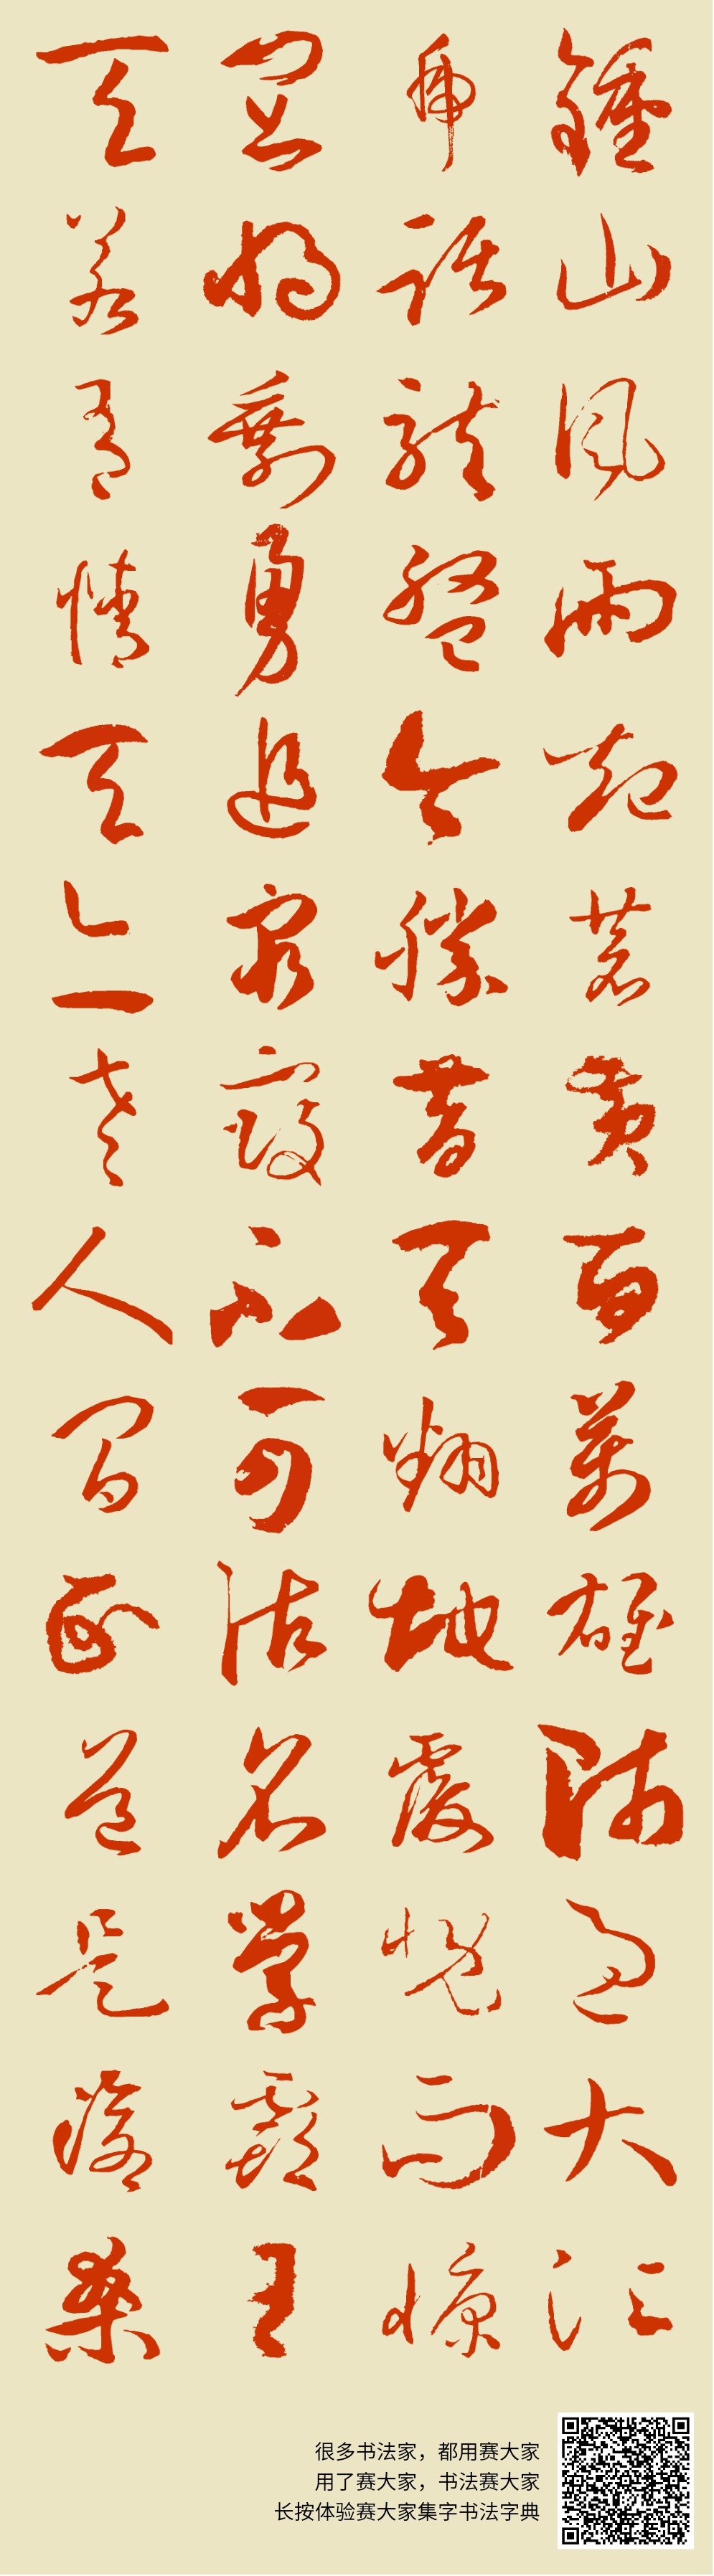 鍾山風雨起蒼黃百萬雄師過大江
虎踞龍盤今勝昔天翻地覆慨而慷
宜將剩勇追窮寇不可沽名學霸王
天若有情天亦老人間正道是滄桑
很多书法家，都用赛大家
用了赛大家，书法赛大家
长按体验赛大家集字书法字典